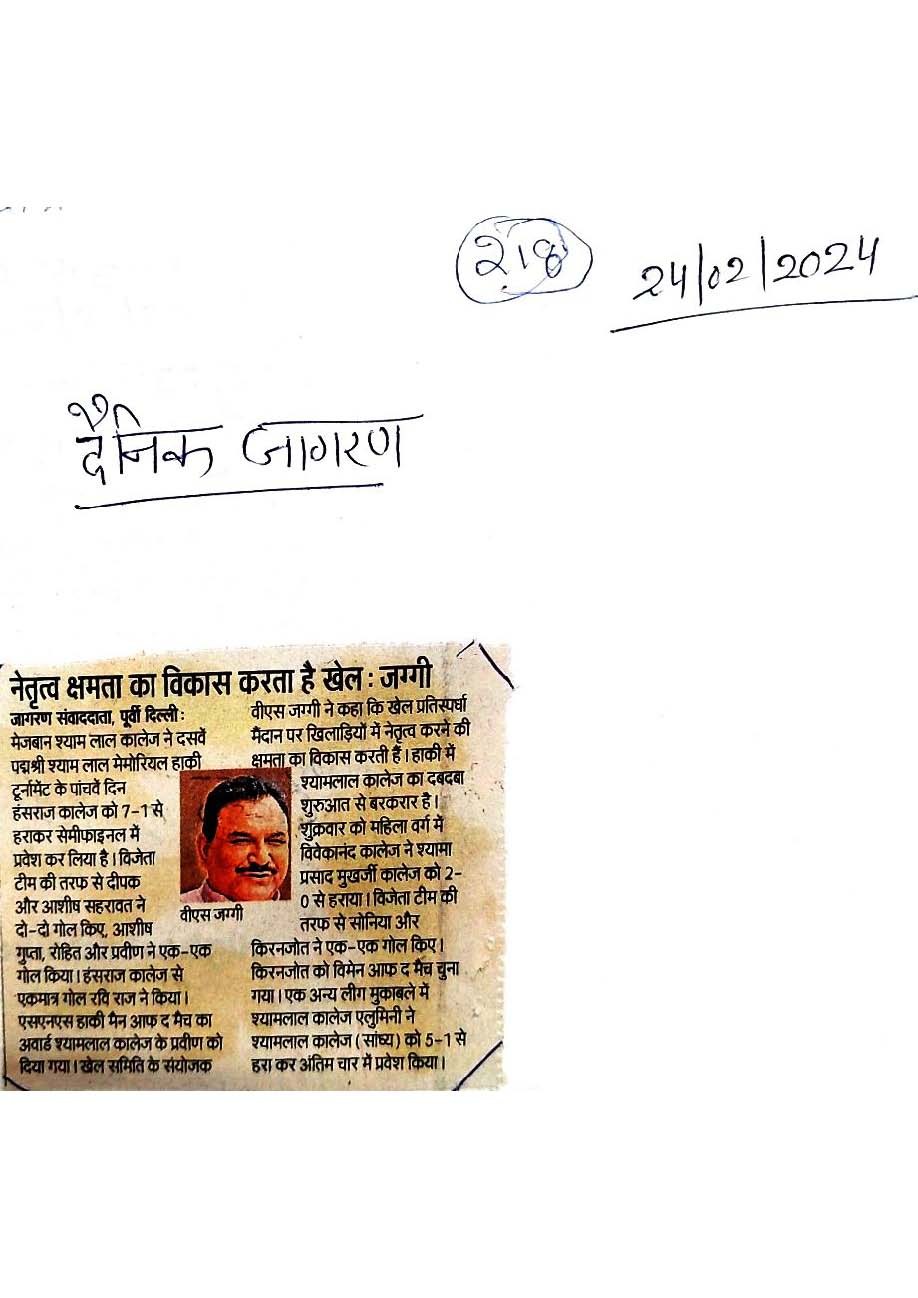 24/02/2024
दैनिक जागरण
नेतृत्व क्षमता का विकास करता है खेल : जग्गी
जागरण संवाददाता, पूर्वी दिल्ली :
मेजबान श्याम लाल कालेज ने दसवें
पद्मश्री श्याम लाल मेमोरियल हाकी
टूर्नामेंट के पांचवें दिन
हंसराज कालेज को 7-1 से
हराकर सेमीफाइनल में
प्रवेश कर लिया है। विजेता
टीम की तरफ से दीपक
और आशीष सहरावत ने
दो-दो गोल किए, आशीष
गुप्ता, रोहित और प्रवीण ने एक-एक
गोल किया। हंसराज कालेज से
एकमात्र गोल रवि राज ने किया।
एसएनएस हाकी मैन आफ द मैच का
अवार्ड श्यामलाल कालेज के प्रवीण को
दिया गया। खेल समिति के संयोजक
वीएस जग्गी
वीएस जग्गी ने कहा कि खेल प्रतिस्पर्धा
मैदान पर खिलाड़ियों में नेतृत्व करने की
क्षमता का विकास करती हैं। हाकी में
श्यामलाल कालेज का दबदबा
शुरुआत से बरकरार है।
शुक्रवार को महिला वर्ग में
विवेकानंद कालेज ने श्यामा
प्रसाद मुखर्जी कालेज को 2-
0 से हराया। विजेता टीम की
तरफ से सोनिया और
किरनजोत ने एक-एक गोल किए।
किरनजोत को विमेन आफ द मैच चुना
गया। एक अन्य लीग मुकाबले में
श्यामलाल कालेज एलुमिनी ने
श्यामलाल कालेज (सांध्य) को 5-1 से
हरा कर अंतिम चार में प्रवेश किया।